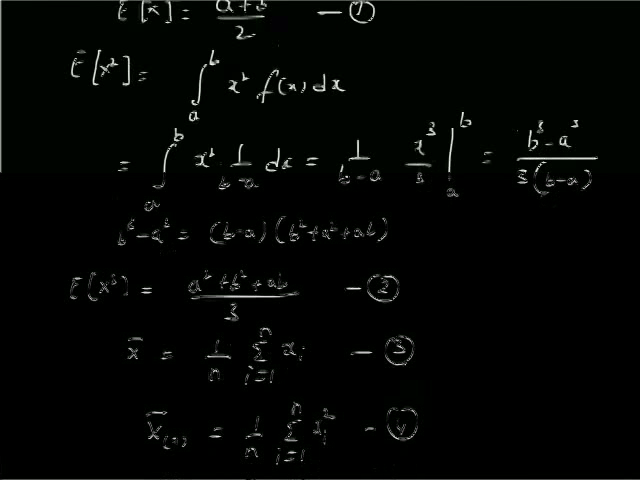 E[x] = a+b/2 — ①
E[x²] = ∫ₐᵇ x² f(x) dx
= ∫ₐᵇ x² 1/(b-a) dx = 1/(b-a) x³/3 |ₐᵇ = (b³-a³)/(3(b-a))
b³-a³ = (b-a)(b²+a²+ab)
E[x²] = (a²+b²+ab)/3 — ②
x̄ = 1/n Σᵢ₌₁ⁿ xᵢ — ③
= 1/n Σᵢ₌₁ⁿ xᵢ² — ④